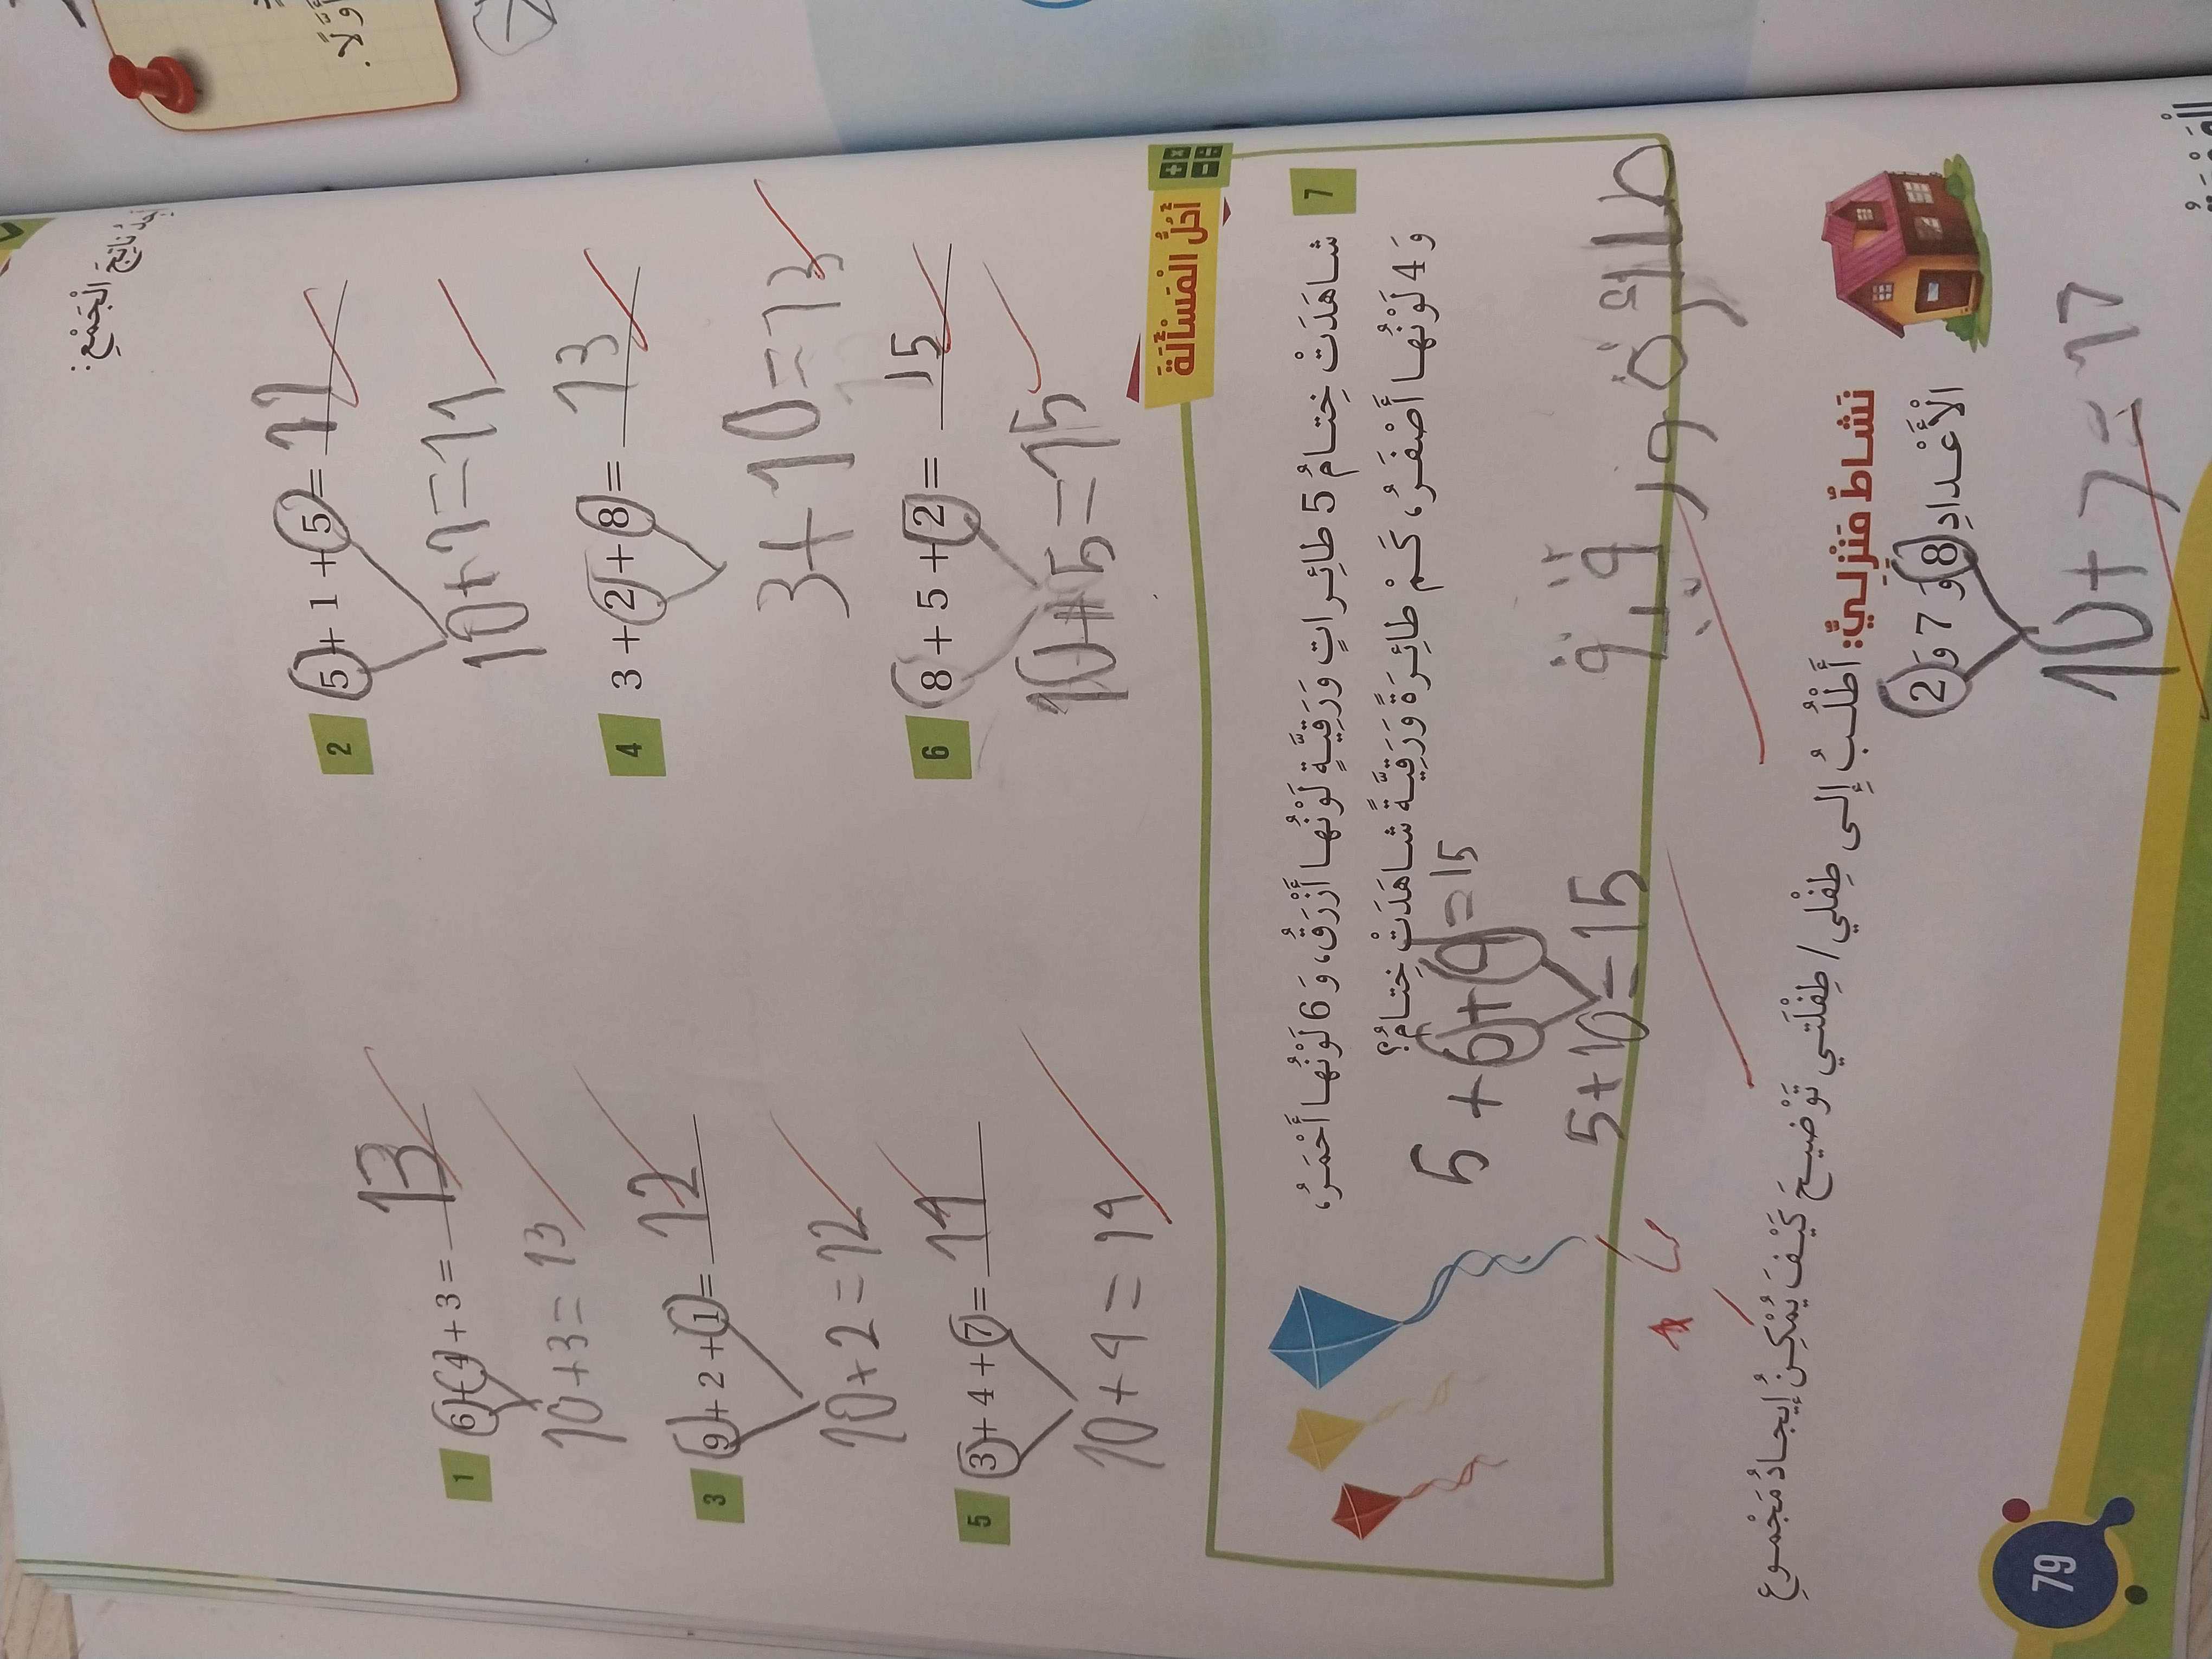 أَوَّلًا.
أَجِدُ ناتِجَ الْجَمْعِ:
1 6 + 4 + 3 = 13
10 + 3 = 13
2 5 + 1 + 5 = 11
10 + 1 = 11
3 9 + 2 + 1 = 12
10 + 2 = 12
4 3 + 2 + 8 = 13
3 + 10 = 13
5 3 + 4 + 7 = 14
10 + 4 = 14
6 8 + 5 + 2 = 15
10 + 5 = 15
أَحُلُّ الْمَسْأَلَةَ
7 شاهَدَتْ خِتامُ 5 طائِراتٍ وَرَقِيَّةٍ لَوْنُها أَزْرَقُ، وَ 6 لَوْنُها أَحْمَرُ،
وَ 4 لَوْنُها أَصْفَرُ، كَمْ طائِرَةً وَرَقِيَّةً شاهَدَتْ خِتامُ؟
5 + 6 + 4 = 15
5 + 10 = 15
نَشاطٌ مَنْزِلِيٌّ: أَطْلُبُ إِلى طِفْلي/ طِفْلَتي تَوْضيحَ كَيْفَ يُمْكِنُ إيجادُ مَجْموعِ
الْأَعْدادِ 8 وَ 7 وَ 2
10 + 7 = 17
79